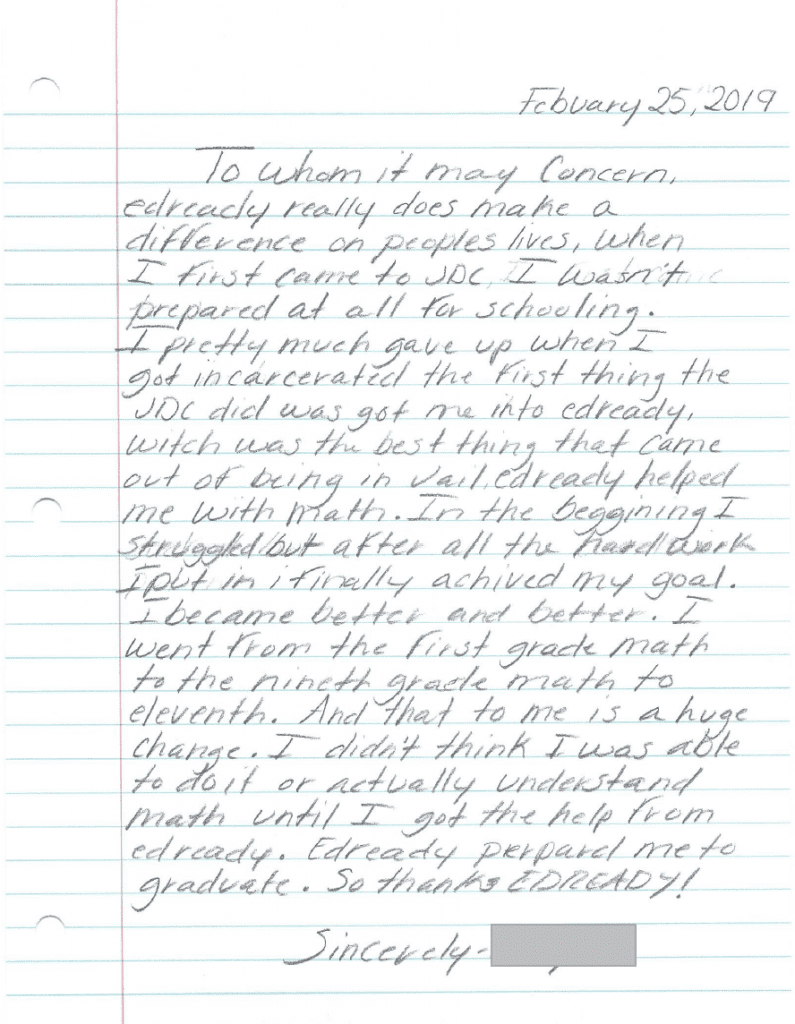 Febuary 25, 2019
To whom it may Concern,
edready really does make a
difference on peoples lives, when
I first came to JDC, I wasn't
prepared at all for schooling.
I pretty much gave up when I
got incarcerated the first thing the
JDC did was got me into edready,
witch was the best thing that came
out of being in Jail, edready helped
me with math. In the beggining I
struggled but after all the hard work
I put in i finally achived my goal.
I became better and better. I
went from the first grade math
to the nineth grade math to
eleventh. And that to me is a huge
change. I didn't think I was able
to do it or actually understand
math until I got the help from
edready. Edready perpard me to
graduate. So thanks EDREADY!
Sincerely-